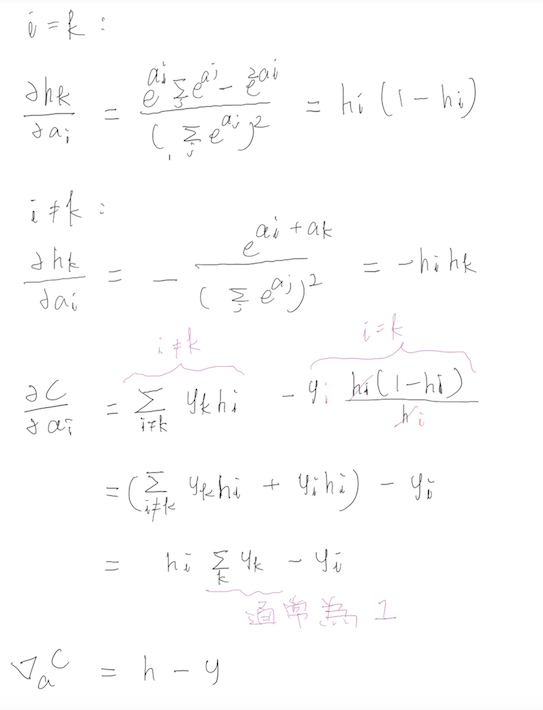 i = k :
∂hk/∂ai = (e^ai Σj e^aj − e^2ai) / (Σj e^aj)^2 = hi (1 − hi)
i ≠ k :
∂hk/∂ai = − e^(ai + ak) / (Σj e^aj)^2 = −hi hk
i ≠ k i = k
∂C/∂ai = Σi≠k yk hi − yi hi(1−hi)/hi
= (Σi≠k yk hi + yi hi) − yi
= hi Σk yk − yi
通常為 1
∇a C = h − y